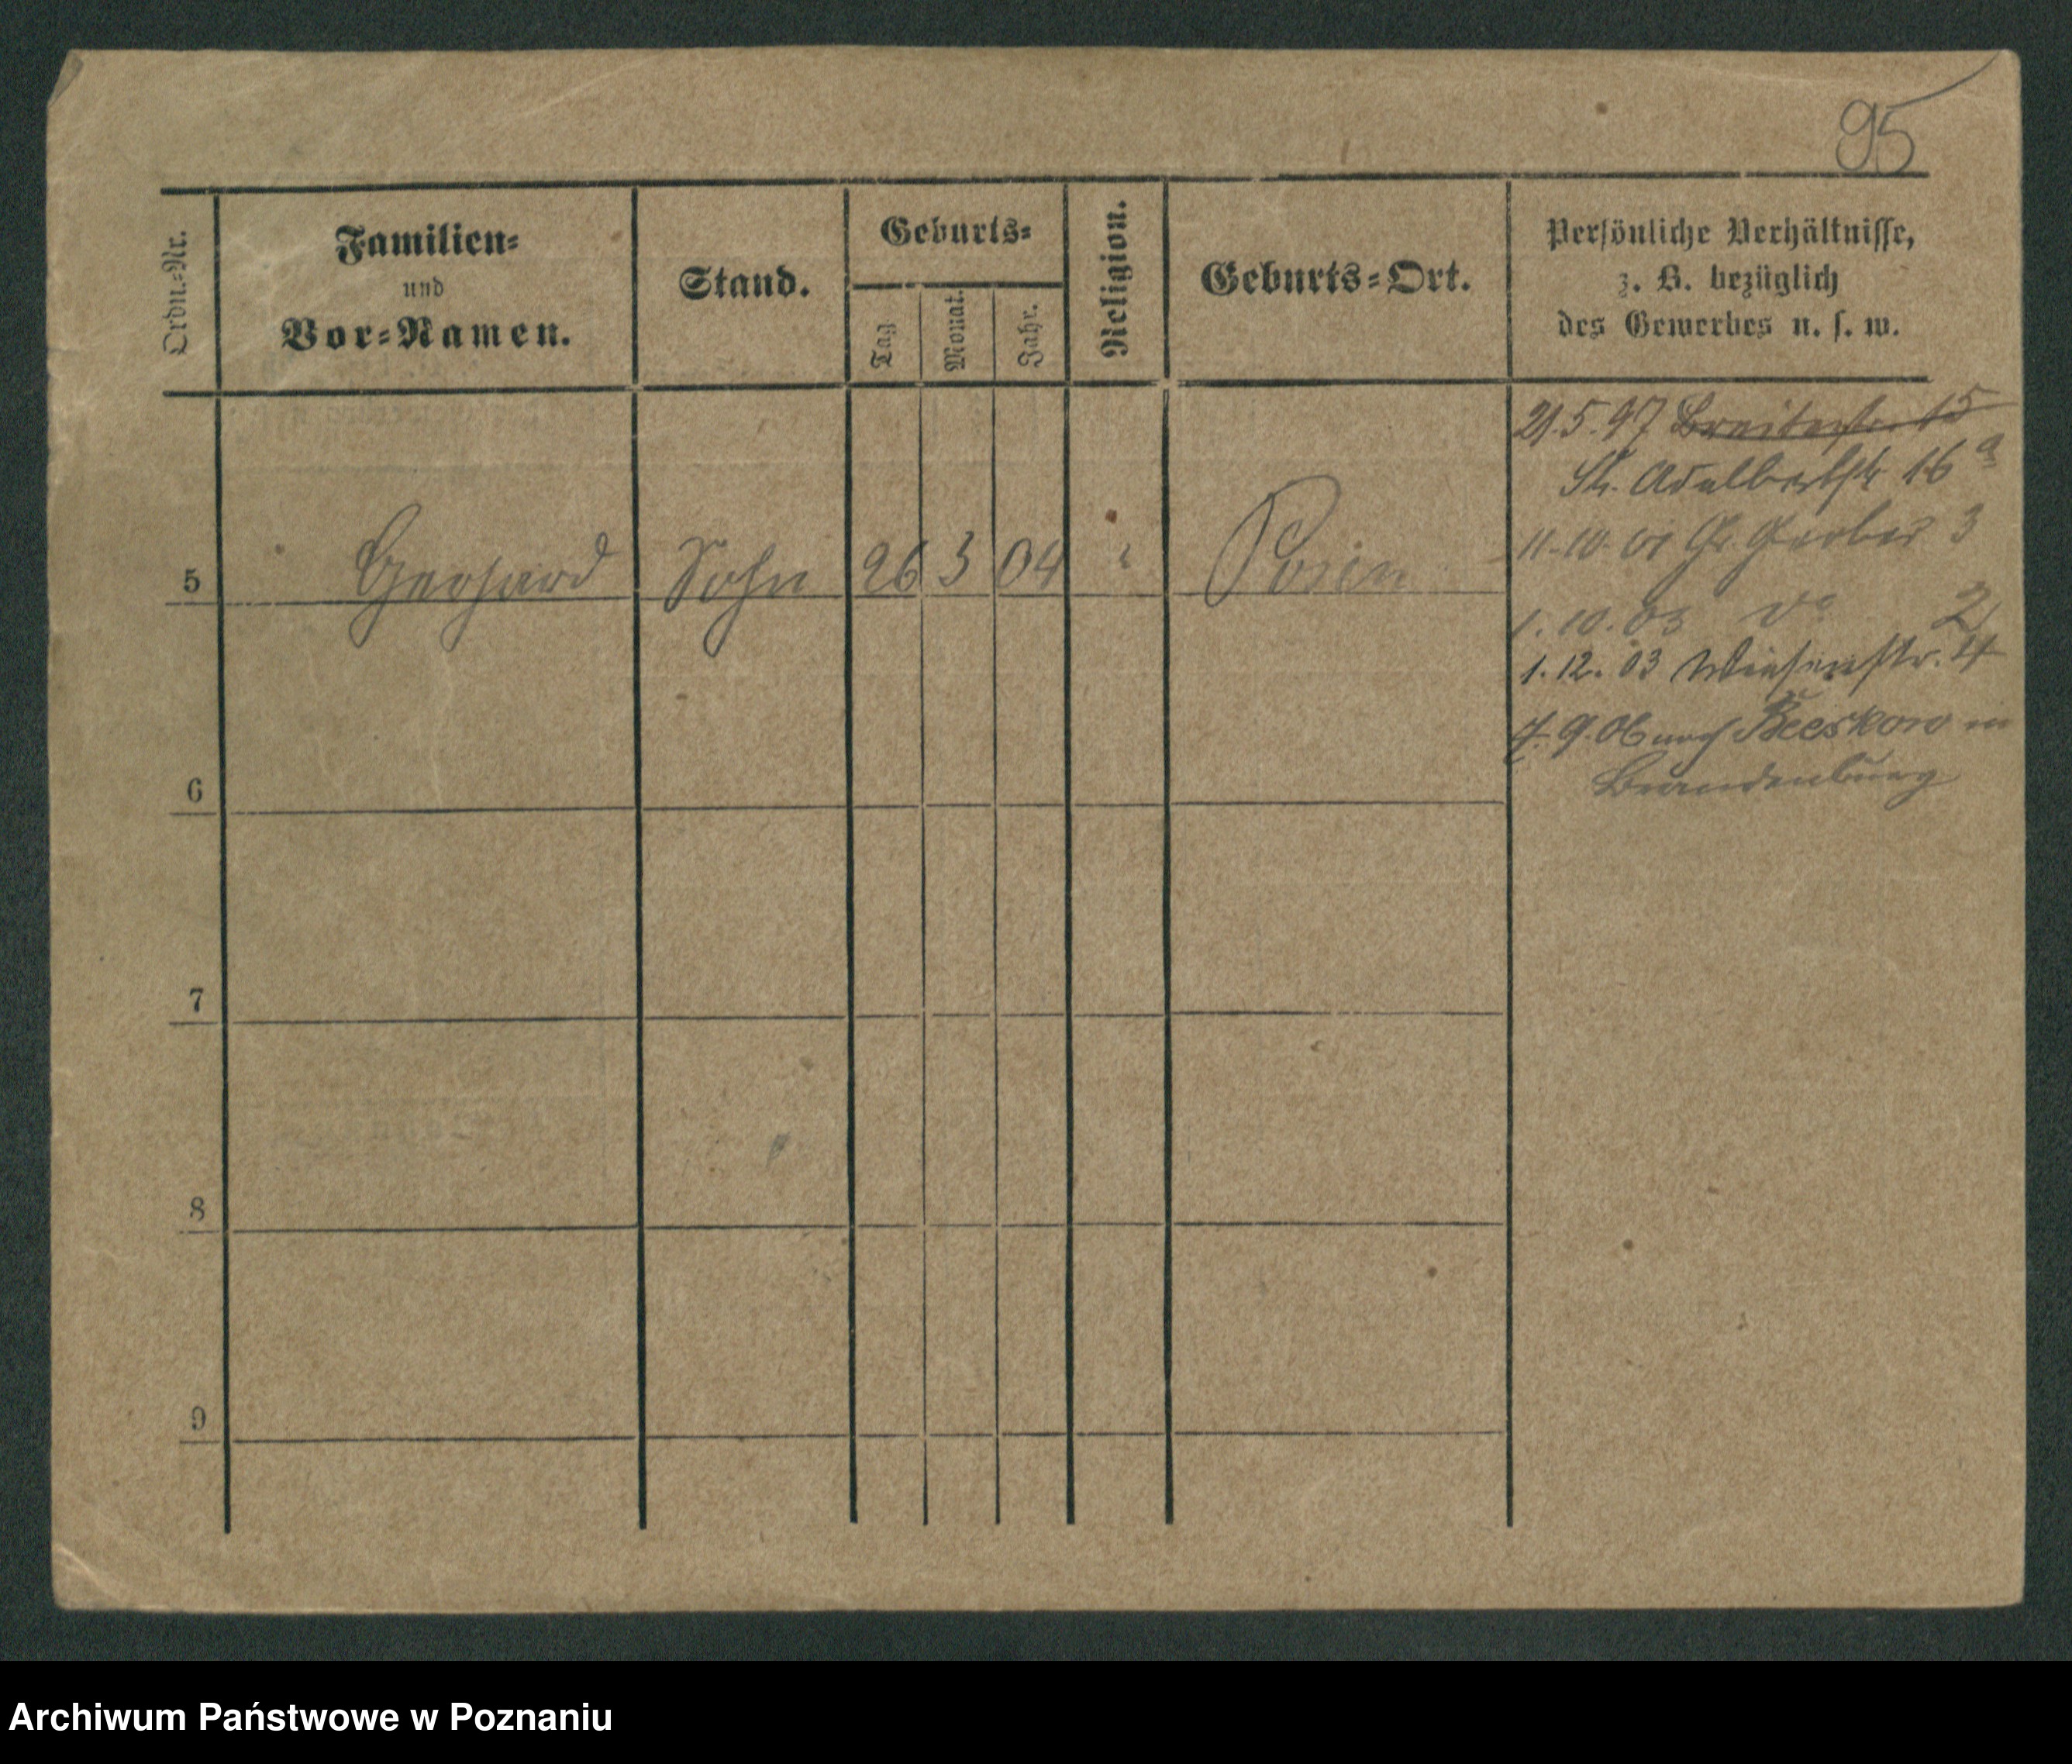 95
Ordn.-Nr.
Familien-
und
Vor-Namen.
Stand.
Geburts-
Tag
Monat.
Jahr.
Religion.
Geburts-Ort.
Persönliche Verhältnisse,
z. B. bezüglich
des Gewerbes u. s. w.
21.5.97 Breitestr. 15
St. Adalbertstr 16a
11.10.01 Gr. Gerber 3
5 Gerhard Sohn 26 3 04 " Posen
1.10.03 do 2
1.12.03 Wiesenstr. 4
7.9.06 nach Beeskow in
Brandenburg
6
7
8
9
Archiwum Państwowe w Poznaniu